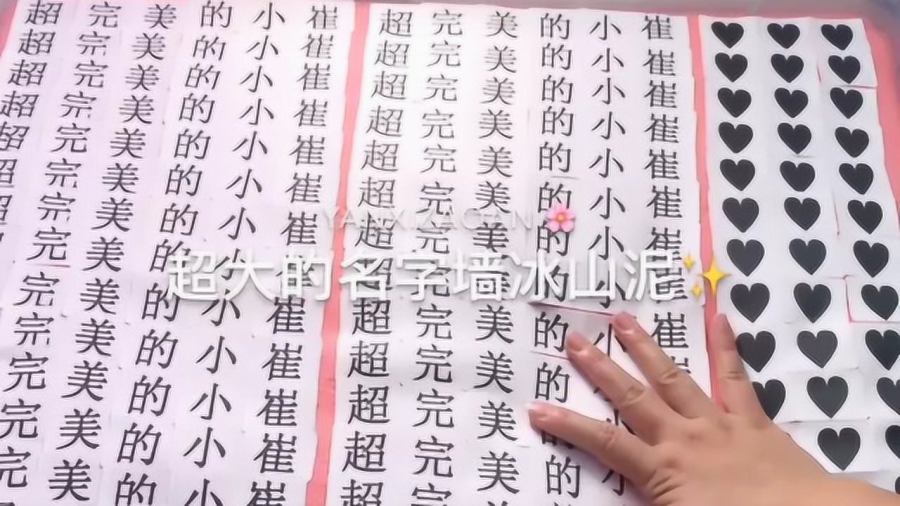 超完美的小崔 超完美的小崔 ♥♥♥
超完美的小崔 超完美的小崔 ♥♥♥
超完美的小崔 超完美的小崔 ♥♥♥
超完美的小崔 超完美的小崔 ♥♥♥
超完美的小崔 超完美的小崔 ♥♥♥
超完美的小崔 超完美的小崔 ♥♥♥
YANXIZAOAN🌸
超大的名字墙冰山泥✨
完美的小崔 超完美的小崔 ♥♥♥
完美的小崔 超完美的 ♥♥♥
完美的小崔 超完美的小崔 ♥♥♥
完美的小崔 超完美的 ♥♥♥
完美的小崔 超完美的 ♥♥
美的小崔 超完美的